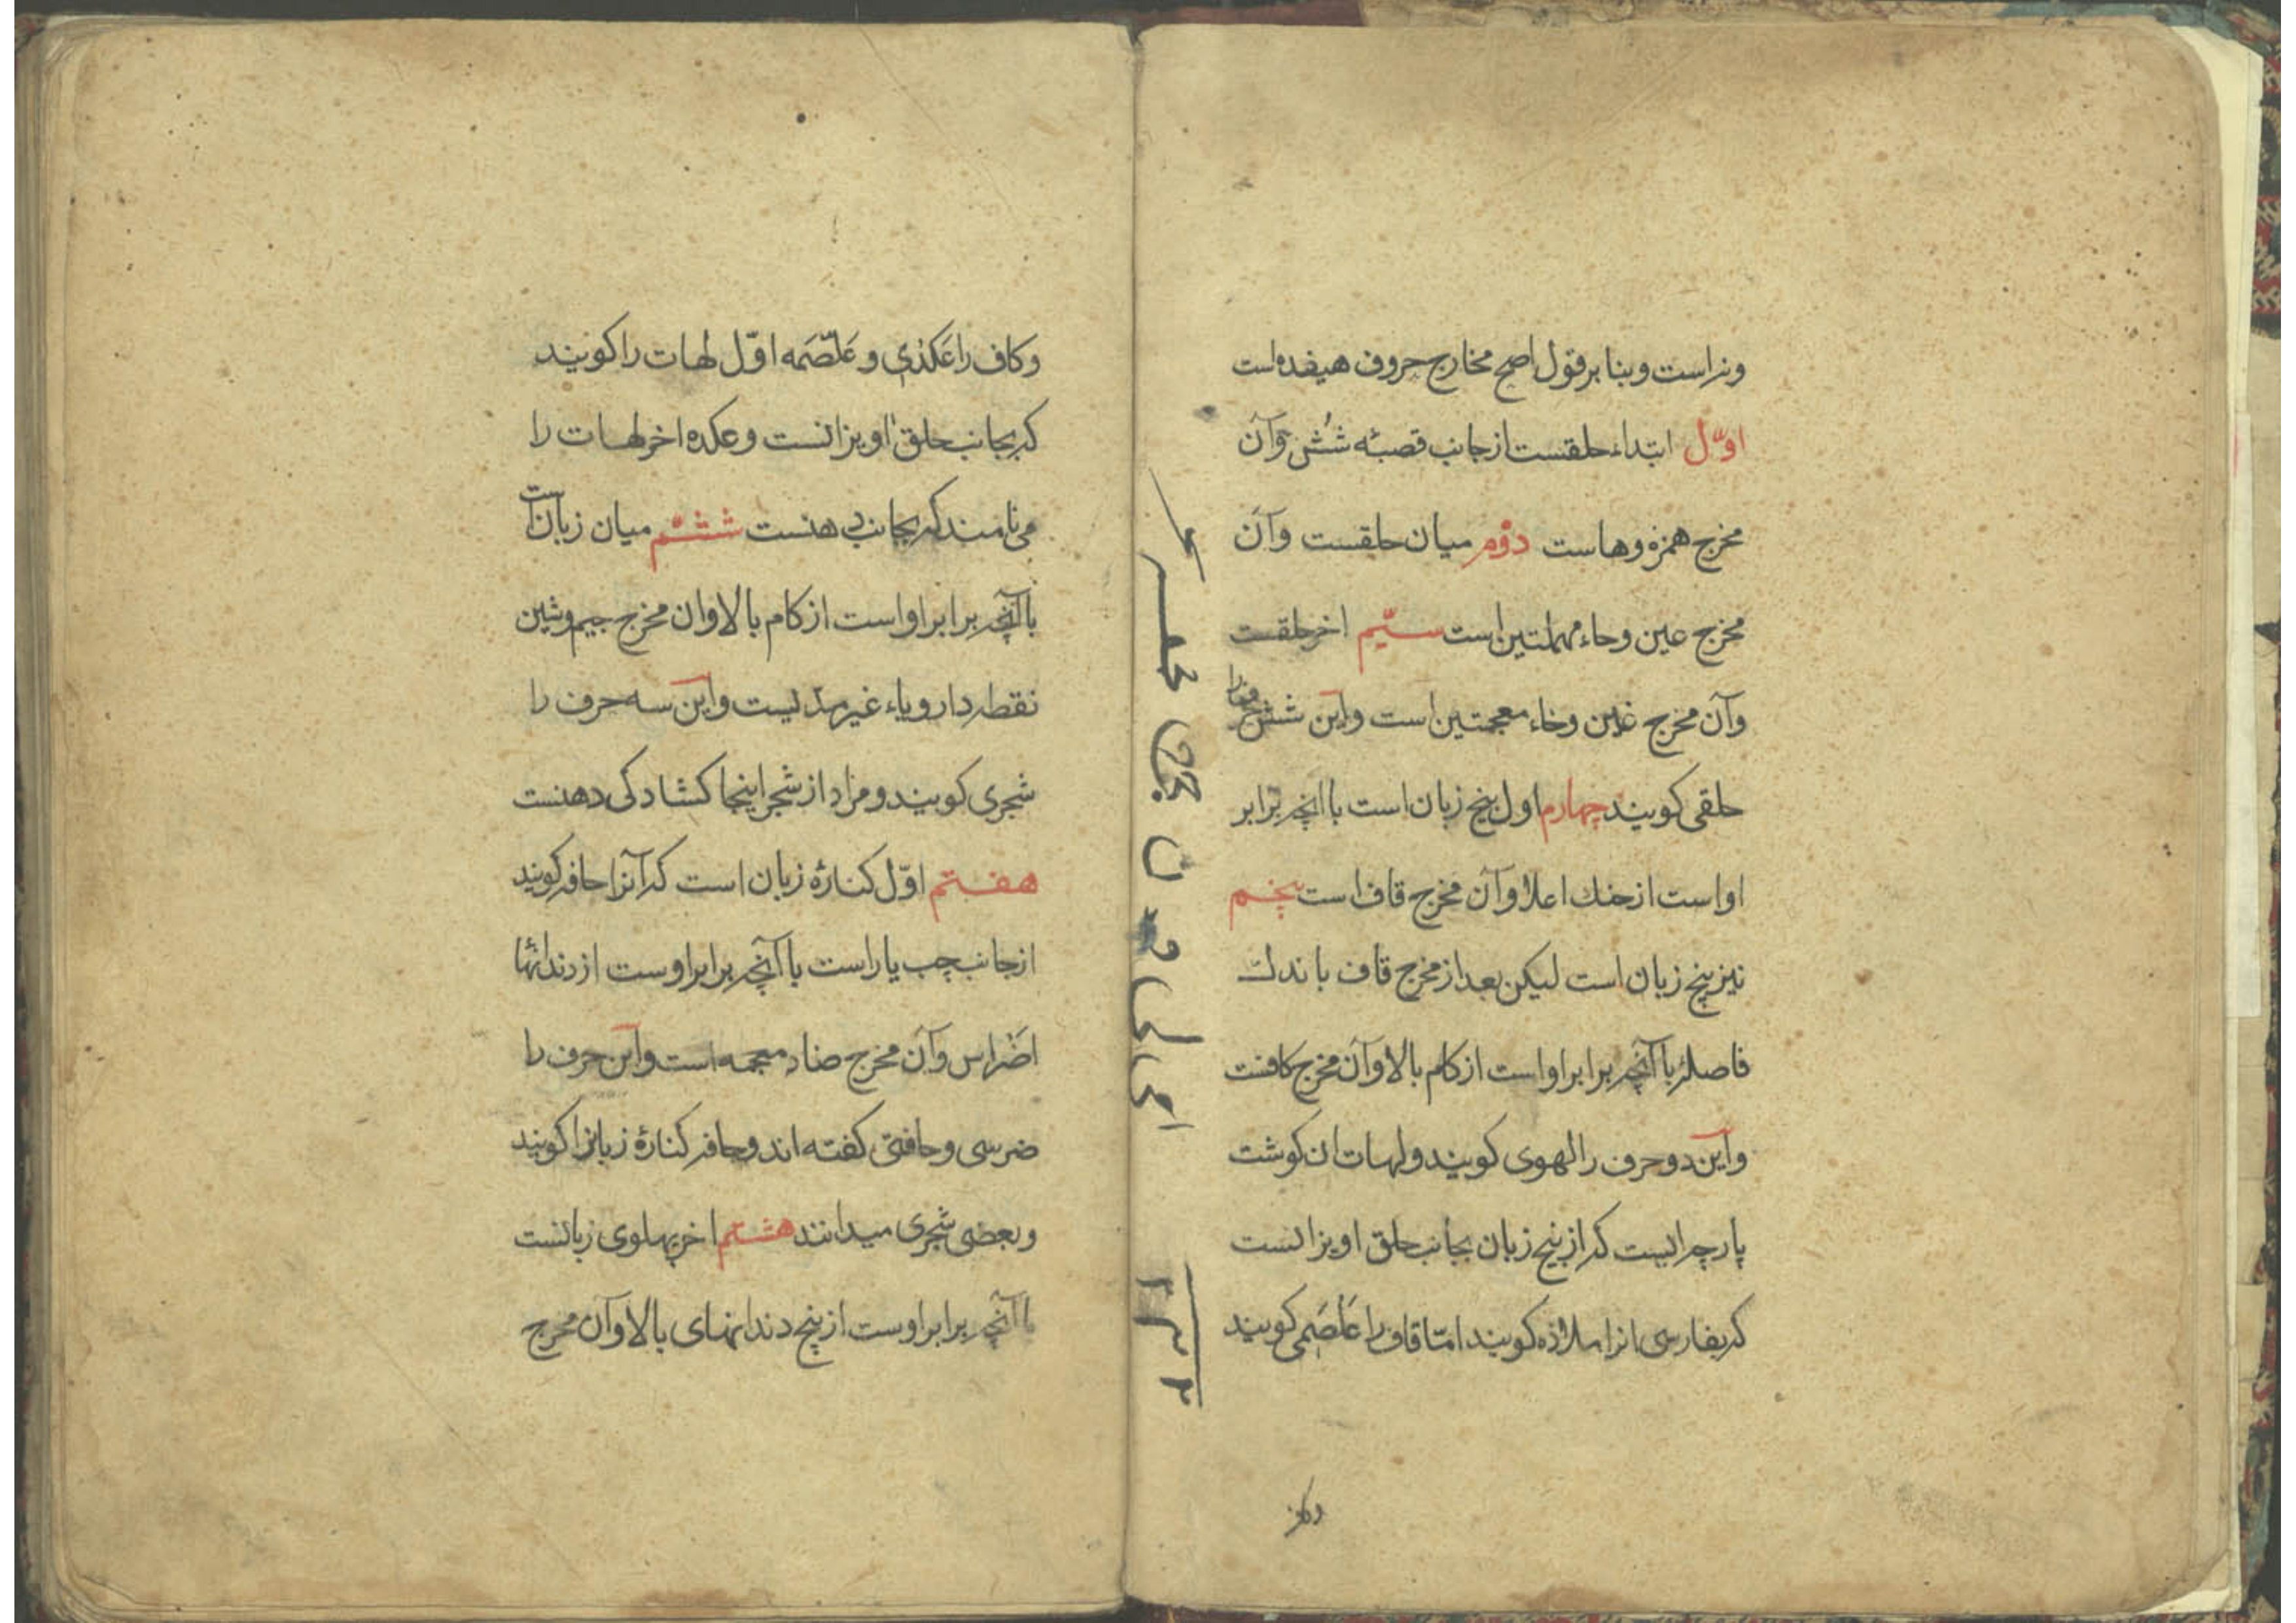 ونراست وبنا بر قول اصح مخارج حروف هیفده است
اوّل ابتداء حلقست از جانب قصبهٔ شُش وآن
مخرج همزه وهاست دوّم میان حلقست وآن
مخرج عین وحاء مهملتین است سیّم اخر حلقست
وآن مخرج غین وخاء معجمتین است واین شش حرف را
حلقی کویند چهارم اول بیخ زبان است باانچه برابر
اواست از حنك اعلا وآن مخرج قاف است پنجم
نیز بیخ زبان است لیکن بعد از مخرج قاف باندك
فاصلهٔ باآنچه برابر اواست از کام بالا وآن مخرج کافست
واین دو حرف را لهوی کویند ولهات ان کوشت
پارچه ایست که از بیخ زبان بجانب حلق اویزانست
که بفارسی انرا ملازه کویند امّا قاف را غلصمی کویند
وکاف
وکاف را عَکَدی و غَلصَمه اوّل لهات را کویند
که بجانب حلق اویزانست وعکده اخر لهات را
می نامند که بجانب دهنست ششم میان زبان است
باآنچه برابر اواست از کام بالا وان مخرج جیم وشین
نقطه دار ویاء غیر مدّیست واین سه حرف را
شجری کویند ومراد از شجر اینجا کشادکی دهنست
هفتم اوّل کنارهٔ زبان است که آنرا حافه کویند
از جانب چب یا راست باآنچه برابر اوست از دندانها
اضراس وآن مخرج ضاد معجمه است واین حرف را
ضرسی وحافتی کفته اند وحافه کنارهٔ زبانرا کویند
وبعضی شجری میدانند هشتم اخر پهلوی زبانست
باآنچه برابر اوست از بیخ دندانهای بالا وآن مخرج